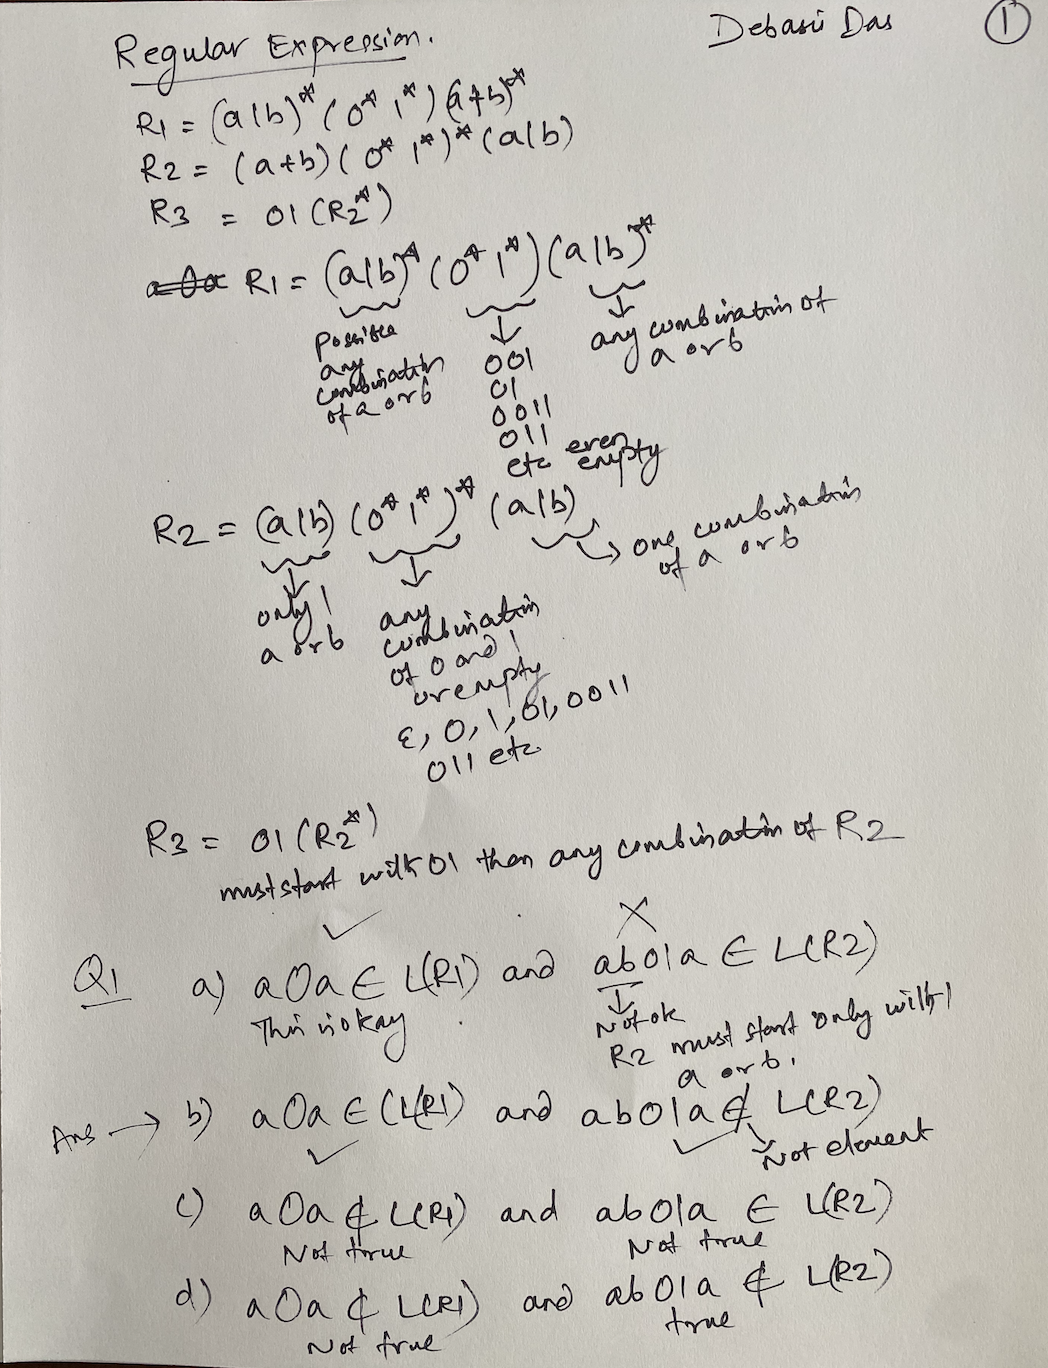 Regular Expression.
Debasis Das
1
R1 = (a|b)* (0* 1*) (a+b)*
R2 = (a+b) (0* 1*)* (a|b)
R3 = 01 (R2*)
R1 = (a|b)* (0* 1*) (a|b)*
possible
any
combination
of a or b
001
01
0011
011
etc even
empty
any combination of
a or b
R2 = (a|b) (0* 1*)* (a|b)
only 1
a or b
any
combination
of 0 and 1
or empty
ε, 0, 1, 01, 0011
011 etc.
one combination
of a or b
R3 = 01 (R2*)
must start with 01 then any combination of R2
Q1 a) a0a ∈ L(R1) and ab01a ∈ L(R2)
This is okay
Not ok
R2 must start only with 1
a or b.
Ans → b) a0a ∈ (L(R1) and ab01a ∉ L(R2)
Not element
c) a0a ∉ L(R1) and ab01a ∈ L(R2)
Not true Not true
d) a0a ∉ L(R1) and ab01a ∉ L(R2)
Not true true